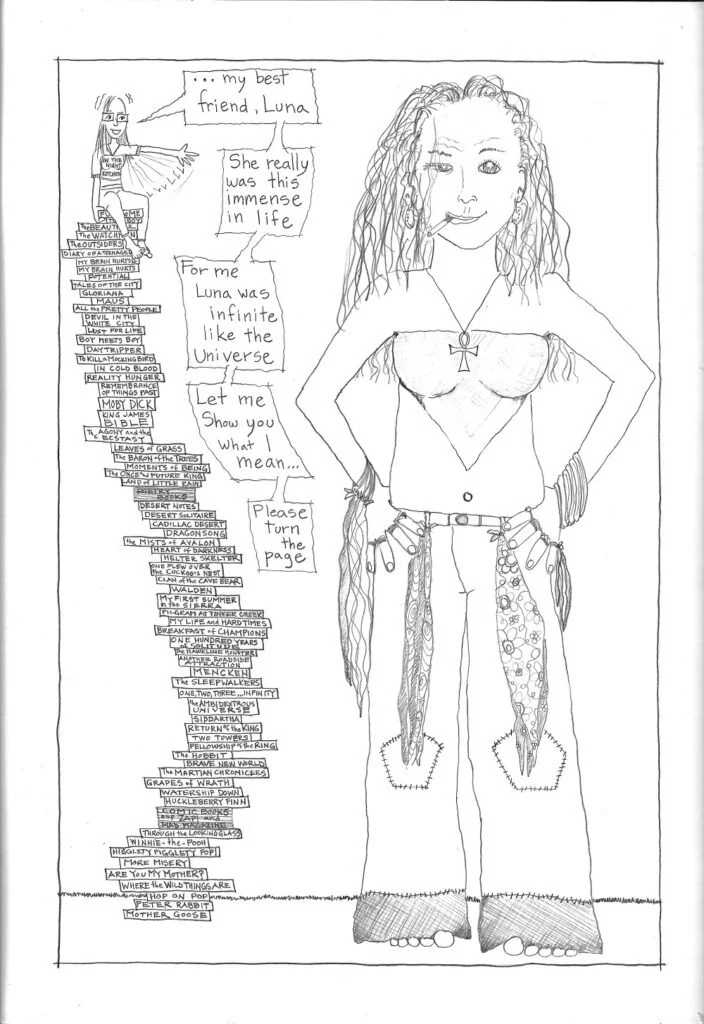 ... my best
friend, Luna
She really
was this
immense
in life
For me
Luna was
infinite
like the
Universe
Let me
Show you
what I
mean...
Please
turn
the
page
IN THE
NIGHT
KITCHEN
The BEAUT
The WATCH
The OUTSIDERS
DIARY OF A TEENAGED
MY BRAIN HURTS 2
MY BRAIN HURTS
POTENTIAL
TALES OF THE CITY
GLORIANA
MAUS
ALL the PRETTY PEOPLE
DEVIL IN THE
WHITE CITY
LUST FOR LIFE
BOY MEETS BOY
DAYTRIPPER
TO KILL A MOCKINGBIRD
IN COLD BLOOD
REALITY HUNGER
REMEMBRANCE
OF THINGS PAST
MOBY DICK
KING JAMES
BIBLE
The AGONY and the
ECSTASY
LEAVES OF GRASS
The BARON of the TREES
MOMENTS OF BEING
The ONCE and FUTURE KING
LAND OF LITTLE RAIN
POETRY
BOOKS
DESERT NOTES
DESERT SOLITAIRE
CADILLAC DESERT
DRAGONSONG
the MISTS of AVALON
HEART OF DARKNESS
HELTER SKELTER
ONE FLEW OVER
the CUCKOO'S NEST
CLAN of the CAVE BEAR
WALDEN
MY FIRST SUMMER
in the SIERRA
PILGRAM AT TINKER CREEK
MY LIFE and HARD TIMES
BREAKFAST of CHAMPIONS
ONE HUNDRED YEARS
of SOLITUDE
The HAWKLINE MONSTER
ANOTHER ROADSIDE
ATTRACTION
MENCKEN
The SLEEPWALKERS
ONE, TWO, THREE...INFINITY
the AMBIDEXTROUS
UNIVERSE
SIDDARTHA
RETURN of the KING
TWO TOWERS
FELLOWSHIP of the RING
The HOBBIT
BRAVE NEW WORLD
The MARTIAN CHRONICLES
GRAPES of WRATH
WATERSHIP DOWN
HUCKLEBERRY FINN
COMIC BOOKS
and
MAD MAGAZINE
THROUGH the LOOKING GLASS
WINNIE-the-POOH
HIGGLETY PIGGLETY POP!
MORE MISERY
ARE YOU MY MOTHER?
WHERE the WILD THINGS ARE
HOP ON POP
PETER RABBIT
MOTHER GOOSE